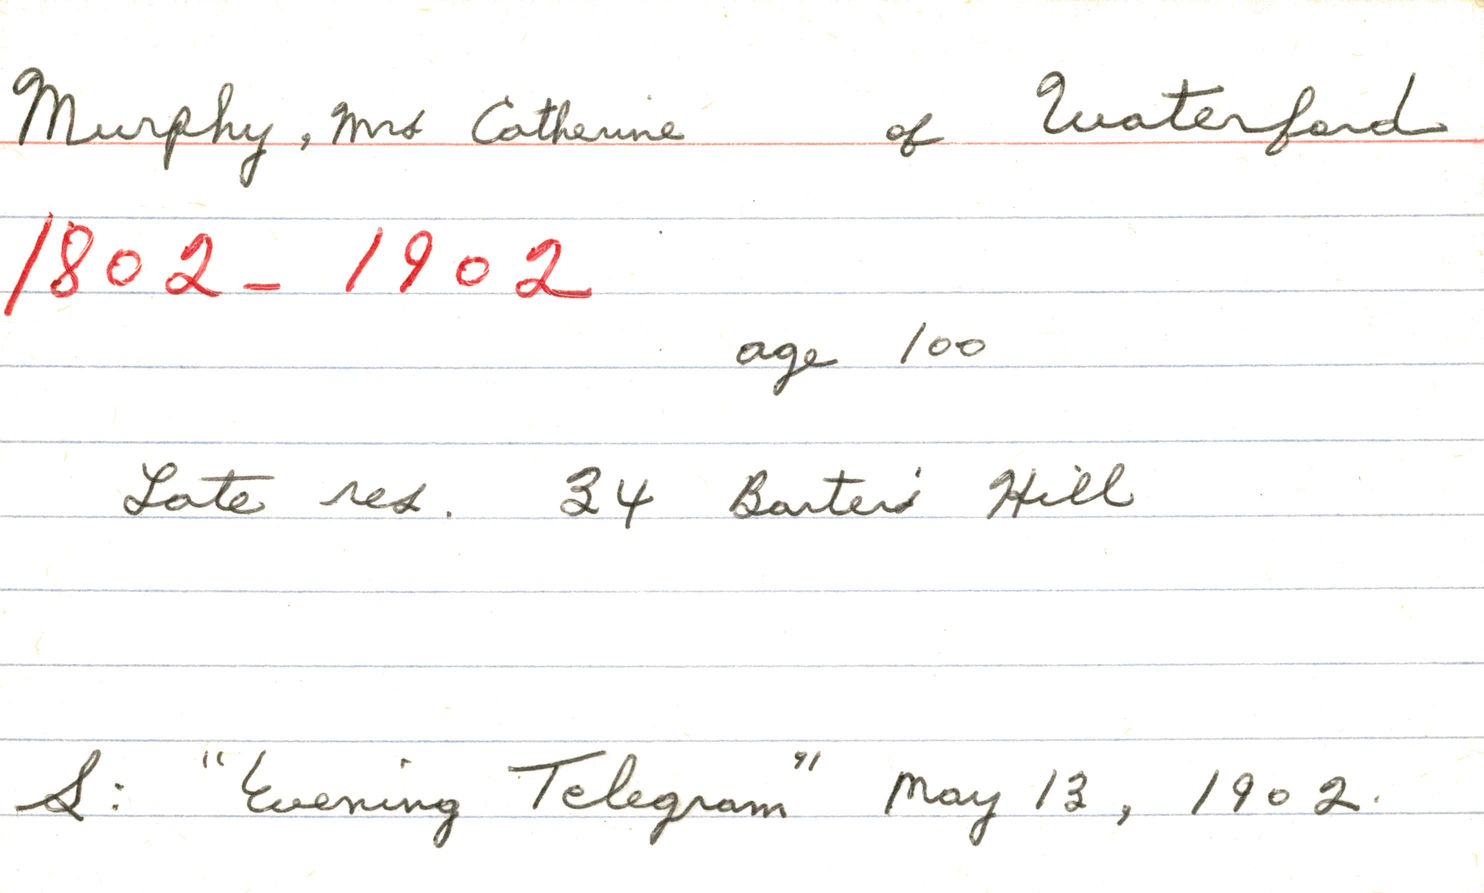 Murphy, Mrs Catherine of Waterford
1802 - 1902
age 100
Late res. 34 Barter's Hill
S: "Evening Telegram" May 13, 1902.